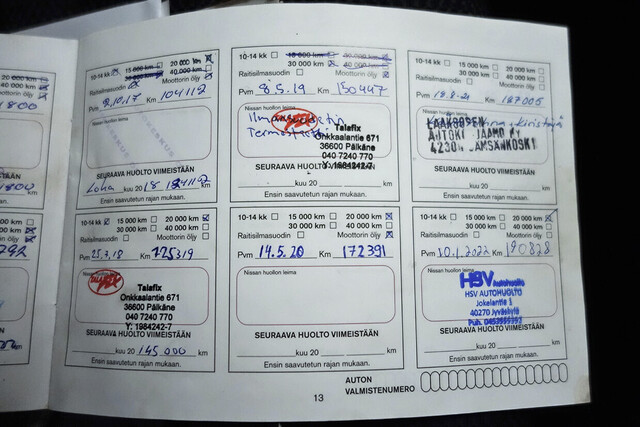 10-14 kk 15 000 km 20 000 km
30 000 km 40 000 km
Raitisilmasuodin Moottorin öljy
Pvm 9.10.17 Km 104112
Nissan huollon leima
SEURAAVA HUOLTO VIIMEISTÄÄN
Loka kuu 20 18 km
Ensin saavutetun rajan mukaan.
10-14 kk 15 000 km 20 000 km
30 000 km 40 000 km
Raitisilmasuodin Moottorin öljy
Pvm 8.5.19 Km 150447
Nissan huollon leima
Talafix
Onkkaalantie 671
36600 Pälkäne
040 7240 770
Y: 1984242-7
SEURAAVA HUOLTO VIIMEISTÄÄN
kuu 20 km
Ensin saavutetun rajan mukaan.
10-14 kk 15 000 km 20 000 km
30 000 km 40 000 km
Raitisilmasuodin Moottorin öljy
Pvm 18.8.21 Km 187006
Nissan huollon leima
SEURAAVA HUOLTO VIIMEISTÄÄN
kuu 20 km
Ensin saavutetun rajan mukaan.
10-14 kk 15 000 km 20 000 km
30 000 km 40 000 km
Raitisilmasuodin Moottorin öljy
Pvm 25.3.18 Km 125319
Nissan huollon leima
Talafix
Onkkaalantie 671
36600 Pälkäne
040 7240 770
Y: 1984242-7
SEURAAVA HUOLTO VIIMEISTÄÄN
kuu 20 145 000 km
Ensin saavutetun rajan mukaan.
10-14 kk 15 000 km 20 000 km
30 000 km 40 000 km
Raitisilmasuodin Moottorin öljy
Pvm 14.5.20 Km 172391
Nissan huollon leima
SEURAAVA HUOLTO VIIMEISTÄÄN
kuu 20 km
Ensin saavutetun rajan mukaan.
10-14 kk 15 000 km 20 000 km
30 000 km 40 000 km
Raitisilmasuodin Moottorin öljy
Pvm 10.1.2022 Km 190828
Nissan huollon leima
HSV Autohuolto
HSV AUTOHUOLTO
Jokelantie 1
40270 Jyväskylä
Puh.
SEURAAVA HUOLTO VIIMEISTÄÄN
kuu 20 km
Ensin saavutetun rajan mukaan.
AUTON
VALMISTENUMERO
13